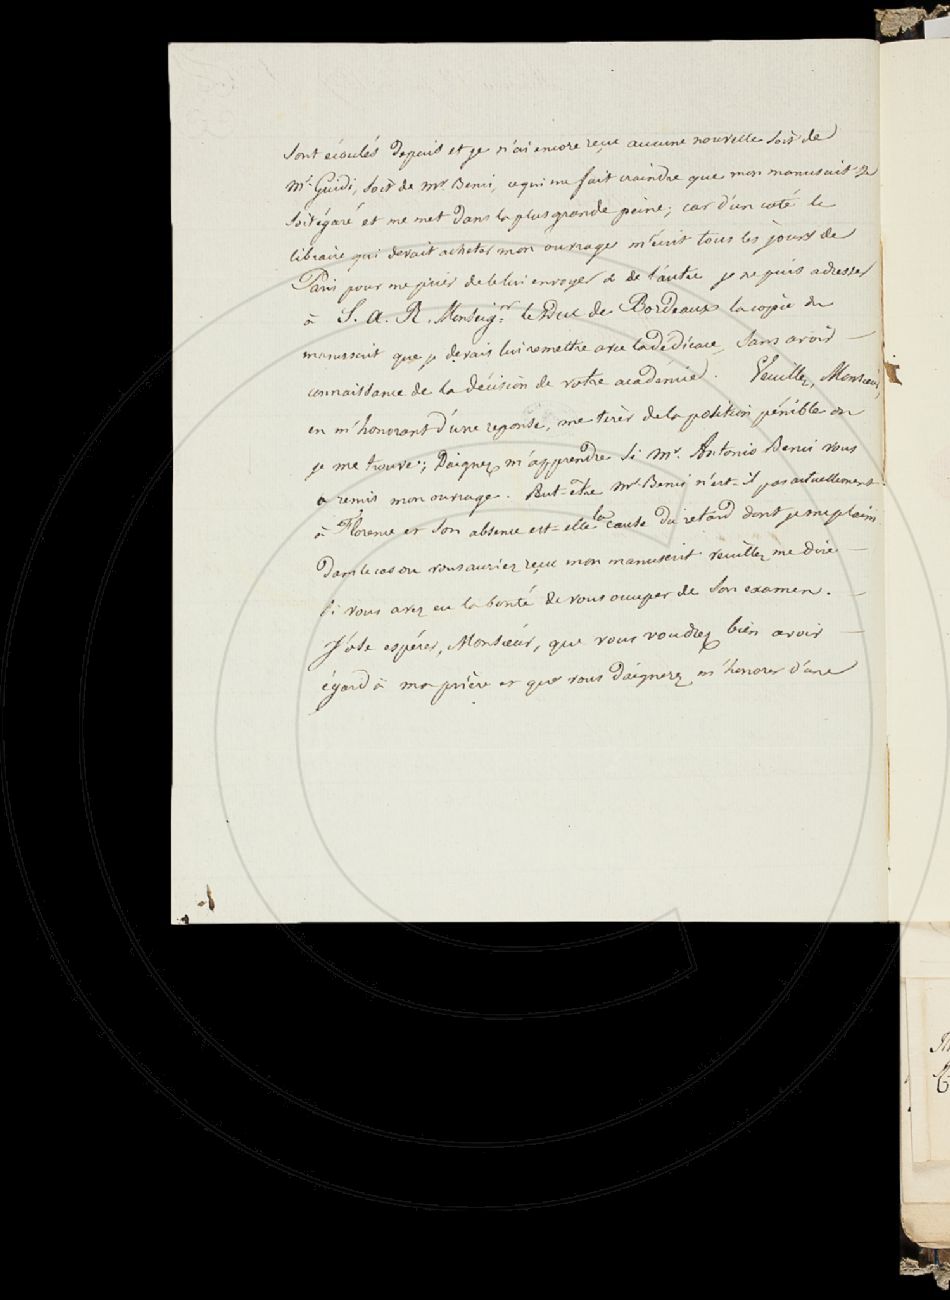 sont écoulés depuis et je n'ai encore reçu aucune nouvelle soit de
Mr. Guidi, soit de Mr. Benci, ce qui me fait craindre que mon manuscrit ne
soit égaré et me met dans la plus grande peine; car d'un coté le
libraire qui devait acheter mon ouvrage m'écrit tous les jours de
Paris pour me prier de le lui envoyer & de l'autre je ne puis adresser
à S. A. R. Monseigr. le Duc de Bordeaux la copie du
manuscrit que je devais lui remettre avec la dédicace, sans avoir
connaissance de la décision de votre académie. Veuillez, Monsieur,
en m'honorant d'une reponse, me tirer de la position pénible où
je me trouve; Daignez m'apprendre si Mr. Antonio Benci vous
a remis mon ouvrage. Peut-être Mr. Benci n'est-il pas actuellement
à Florence et son absence est-elle la cause du retard dont je me plains
Dans le cas où vous auriez reçu mon manuscrit veuillez me dire
si vous avez eu la bonté de vous occuper de son examen.
J'ose espérer, Monsieur, que vous voudrez bien avoir
égard à ma prière et que vous daignerez m'honorer d'une